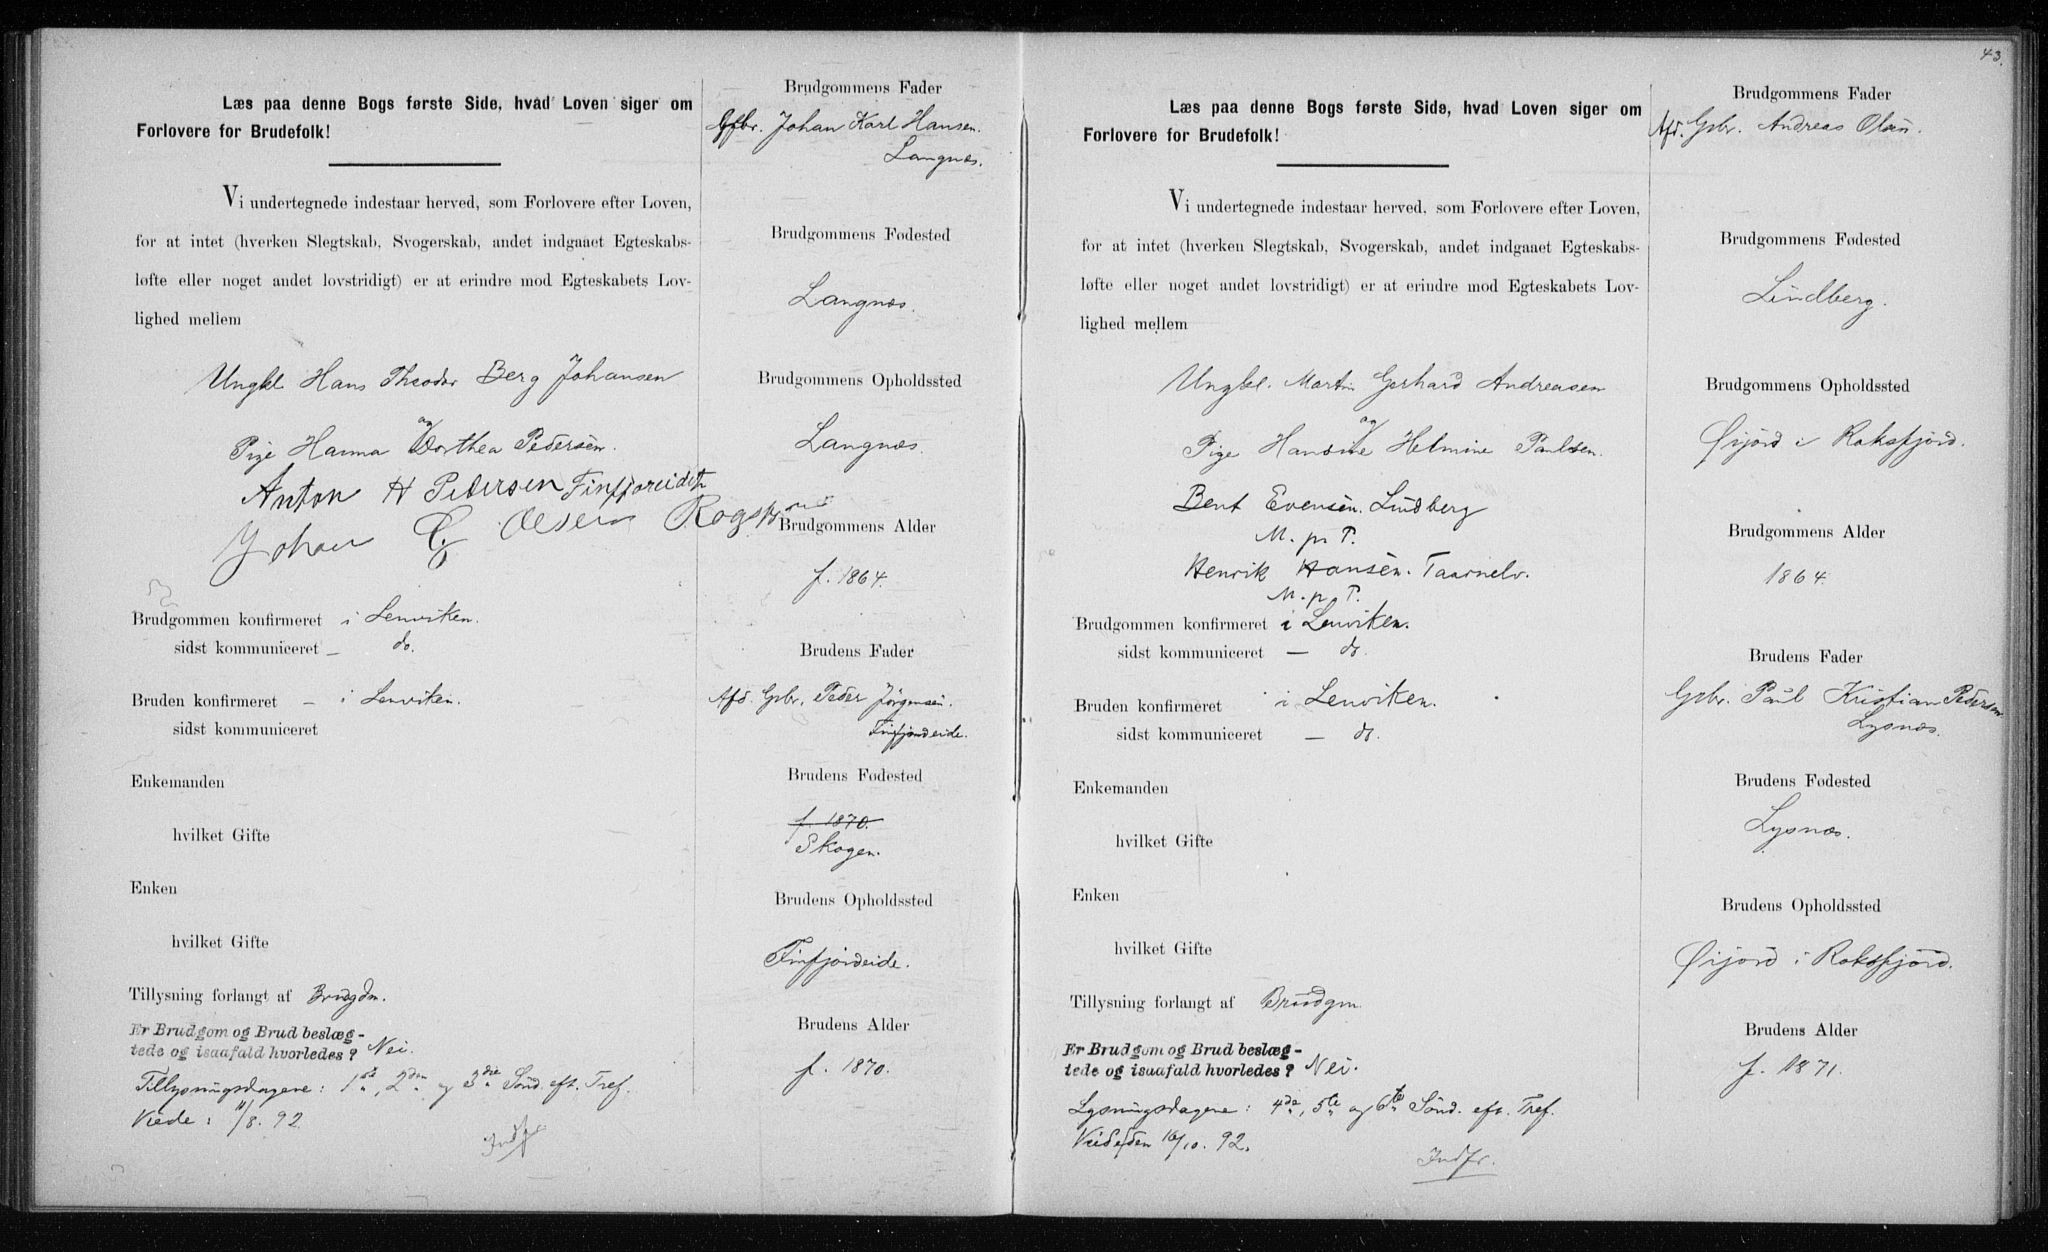 Læs paa denne Bogs første Side, hvad Loven siger om
Forlovere for Brudefolk!
Vi undertegnede indestaar herved, som Forlovere efter Loven,
for at intet (hverken Slegtskab, Svogerskab, andet indgaaet Egteskabs-
løfte eller noget andet lovstridigt) er at erindre mod Egteskabets Lov-
lighed mellem
Ungkl Hans Theodor Berg Johansen
og
Pige Hanna Dorthea Pedersen.
Anton H Pedersen Finfjoreidet
Johan Olsen
Brudgommen konfirmeret i Lenviken.
sidst kommuniceret — do.
Bruden konfirmeret — i Lenviken.
sidst kommuniceret
Enkemanden
hvilket Gifte
Enken
hvilket Gifte
Tillysning forlangt af Brudgm.
Er Brudgom og Brud beslæg-
tede og isaafald hvorledes? Nei.
Tillysningsdagene: 1ste, 2den og 3die Sønd. eft. Tref.
Viede: 11/8. 92
Indf
Brudgommens Fader
Gbr. Johan Karl Hansen.
Langnæs.
Brudgommens Fødested
Langnæs.
Brudgommens Opholdssted
Langnæs.
Brudgommens Alder
f. 1864.
Brudens Fader
Afd. Gbr. Peder Jörgensen.
Finfjordeide.
Brudens Fødested
f. 1870.
Skogen.
Brudens Opholdssted
Finfjordeide.
Brudens Alder
f. 1870.
43.
Læs paa denne Bogs første Side, hvad Loven siger om
Forlovere for Brudefolk!
Vi undertegnede indestaar herved, som Forlovere efter Loven,
for at intet (hverken Slegtskab, Svogerskab, andet indgaaet Egteskabs-
løfte eller noget andet lovstridigt) er at erindre mod Egteskabets Lov-
lighed mellem
Ungkl. Martin Gerhard Andreasen
og
Pige Hansine Helmine Paulsen.
Bent Evensen. Lindberg
M. p. P.
Henrik Hansen. Taarnelv.
M. p. P.
Brudgommen konfirmeret i Lenviken.
sidst kommuniceret — do.
Bruden konfirmeret i Lenviken.
sidst kommuniceret — do.
Enkemanden
hvilket Gifte
Enken
hvilket Gifte
Tillysning forlangt af Brudgm
Er Brudgom og Brud beslæg-
tede og isaafald hvorledes? Nei.
Lysningsdagene: 4de, 5te og 6te Sønd. eft. Tref.
Viede den 16/10. 92.
Indf.
Brudgommens Fader
Afd. Gbr. Andreas Olsen.
Brudgommens Fødested
Lindberg.
Brudgommens Opholdssted
Øijord i Roksfjord.
Brudgommens Alder
1864.
Brudens Fader
Gbr. Paul Kristian Pedersen
Lysnæs.
Brudens Fødested
Lysnæs.
Brudens Opholdssted
Øijord i Roksfjord.
Brudens Alder
f. 1871.